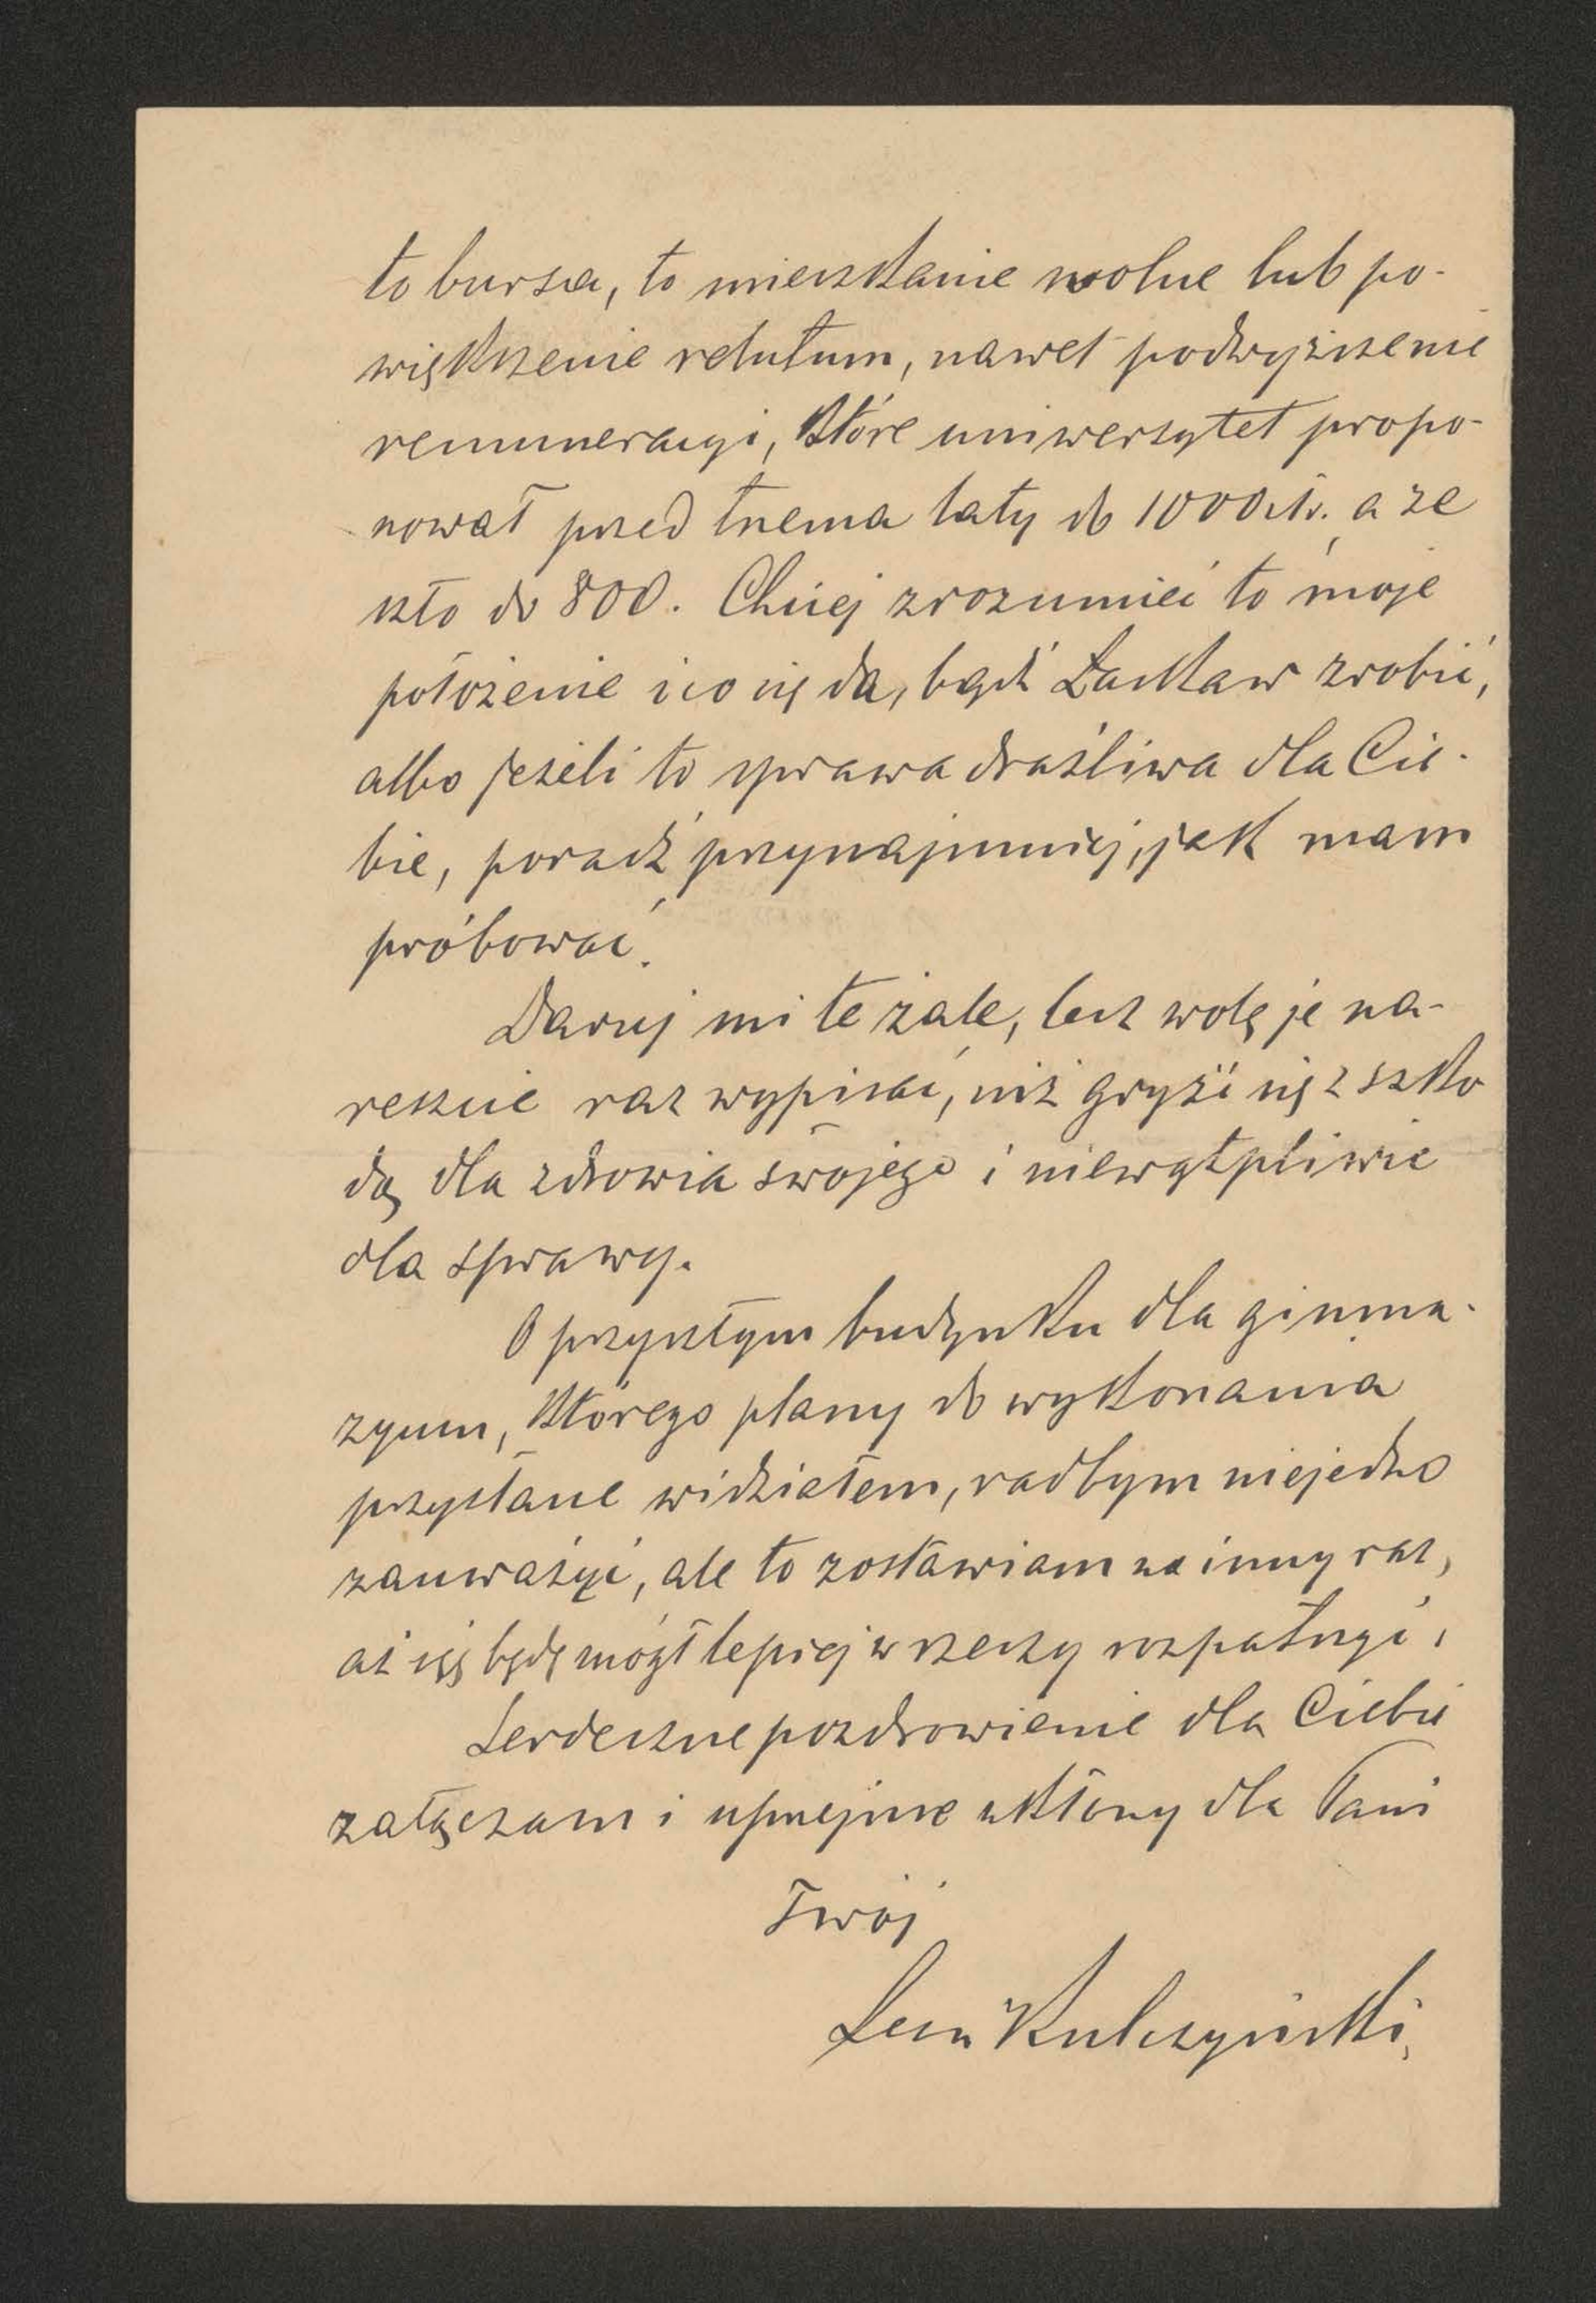 to bursa, to mieszkanie wolne lub po-
większenie relutum, nawet podwyższenie
remuneracyi, które uniwersytet propo-
nował przed trzema laty do 1000 złr. a ze
szło do 800. Chciej zrozumieć to moje
położenie i co się da, bądź łaskaw zrobić,
albo jeżeli to sprawa drażliwa dla Cie-
bie, poradź przynajmniej, jak mam
próbować.
Daruj mi te żale, lecz wolę je na-
reszcie raz wypisać, niż gryźć się z szko
dą dla zdrowia swojego i niewątpliwie
dla sprawy.
O przyszłym budynku dla gimna-
zyum, którego plany do wykonania
przysłane widziałem, radbym niejedno
zauważyć, ale to zostawiam na inny raz,
aż się będę mógł lepiej w rzeczy rozpatrzyć.
Serdeczne pozdrowienie dla Ciebie
załączam i uprzejme ukłony dla Pani
Twój
Leon Kulczyński.